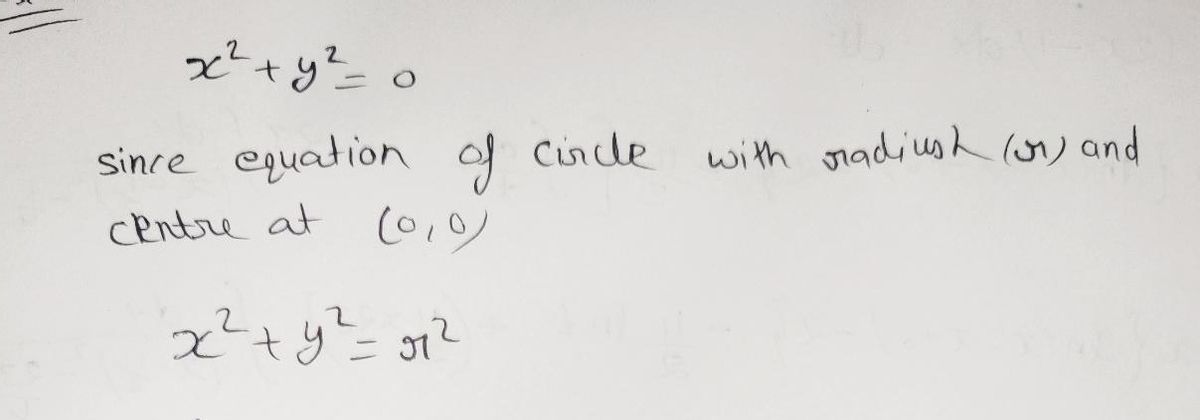 x² + y² = 0
since equation of circle with radiush (r) and
centre at (0,0)
x² + y² = r²